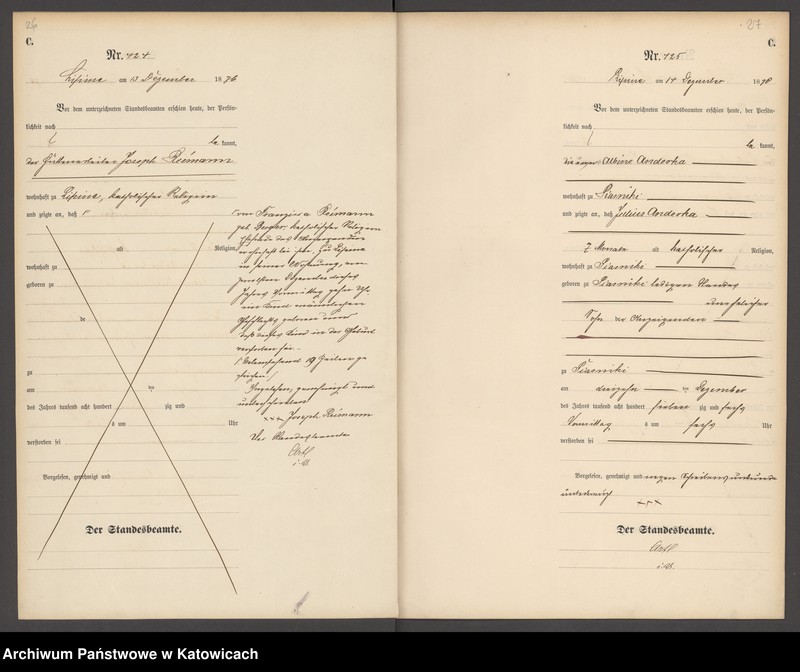 26
C.
Nr. 424
Lipine am 13 Dezember 1876
Vor dem unterzeichneten Standesbeamten erschien heute, der Persön-
lichkeit nach
be kannt,
der Hüttenarbeiter Joseph Reimann
wohnhaft zu Lipine, katholischer Religion
und zeigte an, daß
von Franziska Reimann
geb. katholischer Religion
Ehefrau des Anzeigenden
wohnhaft bei ihm, zu Lipine
in seiner Wohnung, am
Dezember dieses
Jahres Vormittag zehn Uhr
ein Kind männlichen
Geschlechts geboren und
daß dieses Kind in der Geburt
verstorben sei.
Vorstehend 19 Zeilen ge
strichen.
Vorgelesen, genehmigt und
unterschrieben
xxx Joseph Reimann
Der Standesbeamte
i. V.
alt Religion,
wohnhaft zu
geboren zu
de
zu
am ten
des Jahres tausend acht hundert zig und
um Uhr
verstorben sei
Vorgelesen, genehmigt und
Der Standesbeamte.
27
C.
Nr. 425
Lipine am 14 Dezember 1876
Vor dem unterzeichneten Standesbeamten erschien heute, der Persön-
lichkeit nach
be kannt,
die Albine Anderka
wohnhaft zu Piasniki
und zeigte an, daß Julius Anderka
7 Monate alt katholischer Religion,
wohnhaft zu Piasniki
geboren zu Piasniki ledigen Standes
unehelicher
Sohn der Anzeigenden
zu Piasniki
am dreizehn ten Dezember
des Jahres tausend acht hundert sieben zig und sechs
Vormittag um sechs Uhr
verstorben sei
Vorgelesen, genehmigt und wegen Schreibensunkunde
unterkreuzt
+++
Der Standesbeamte.
i. V.
Archiwum Państwowe w Katowicach